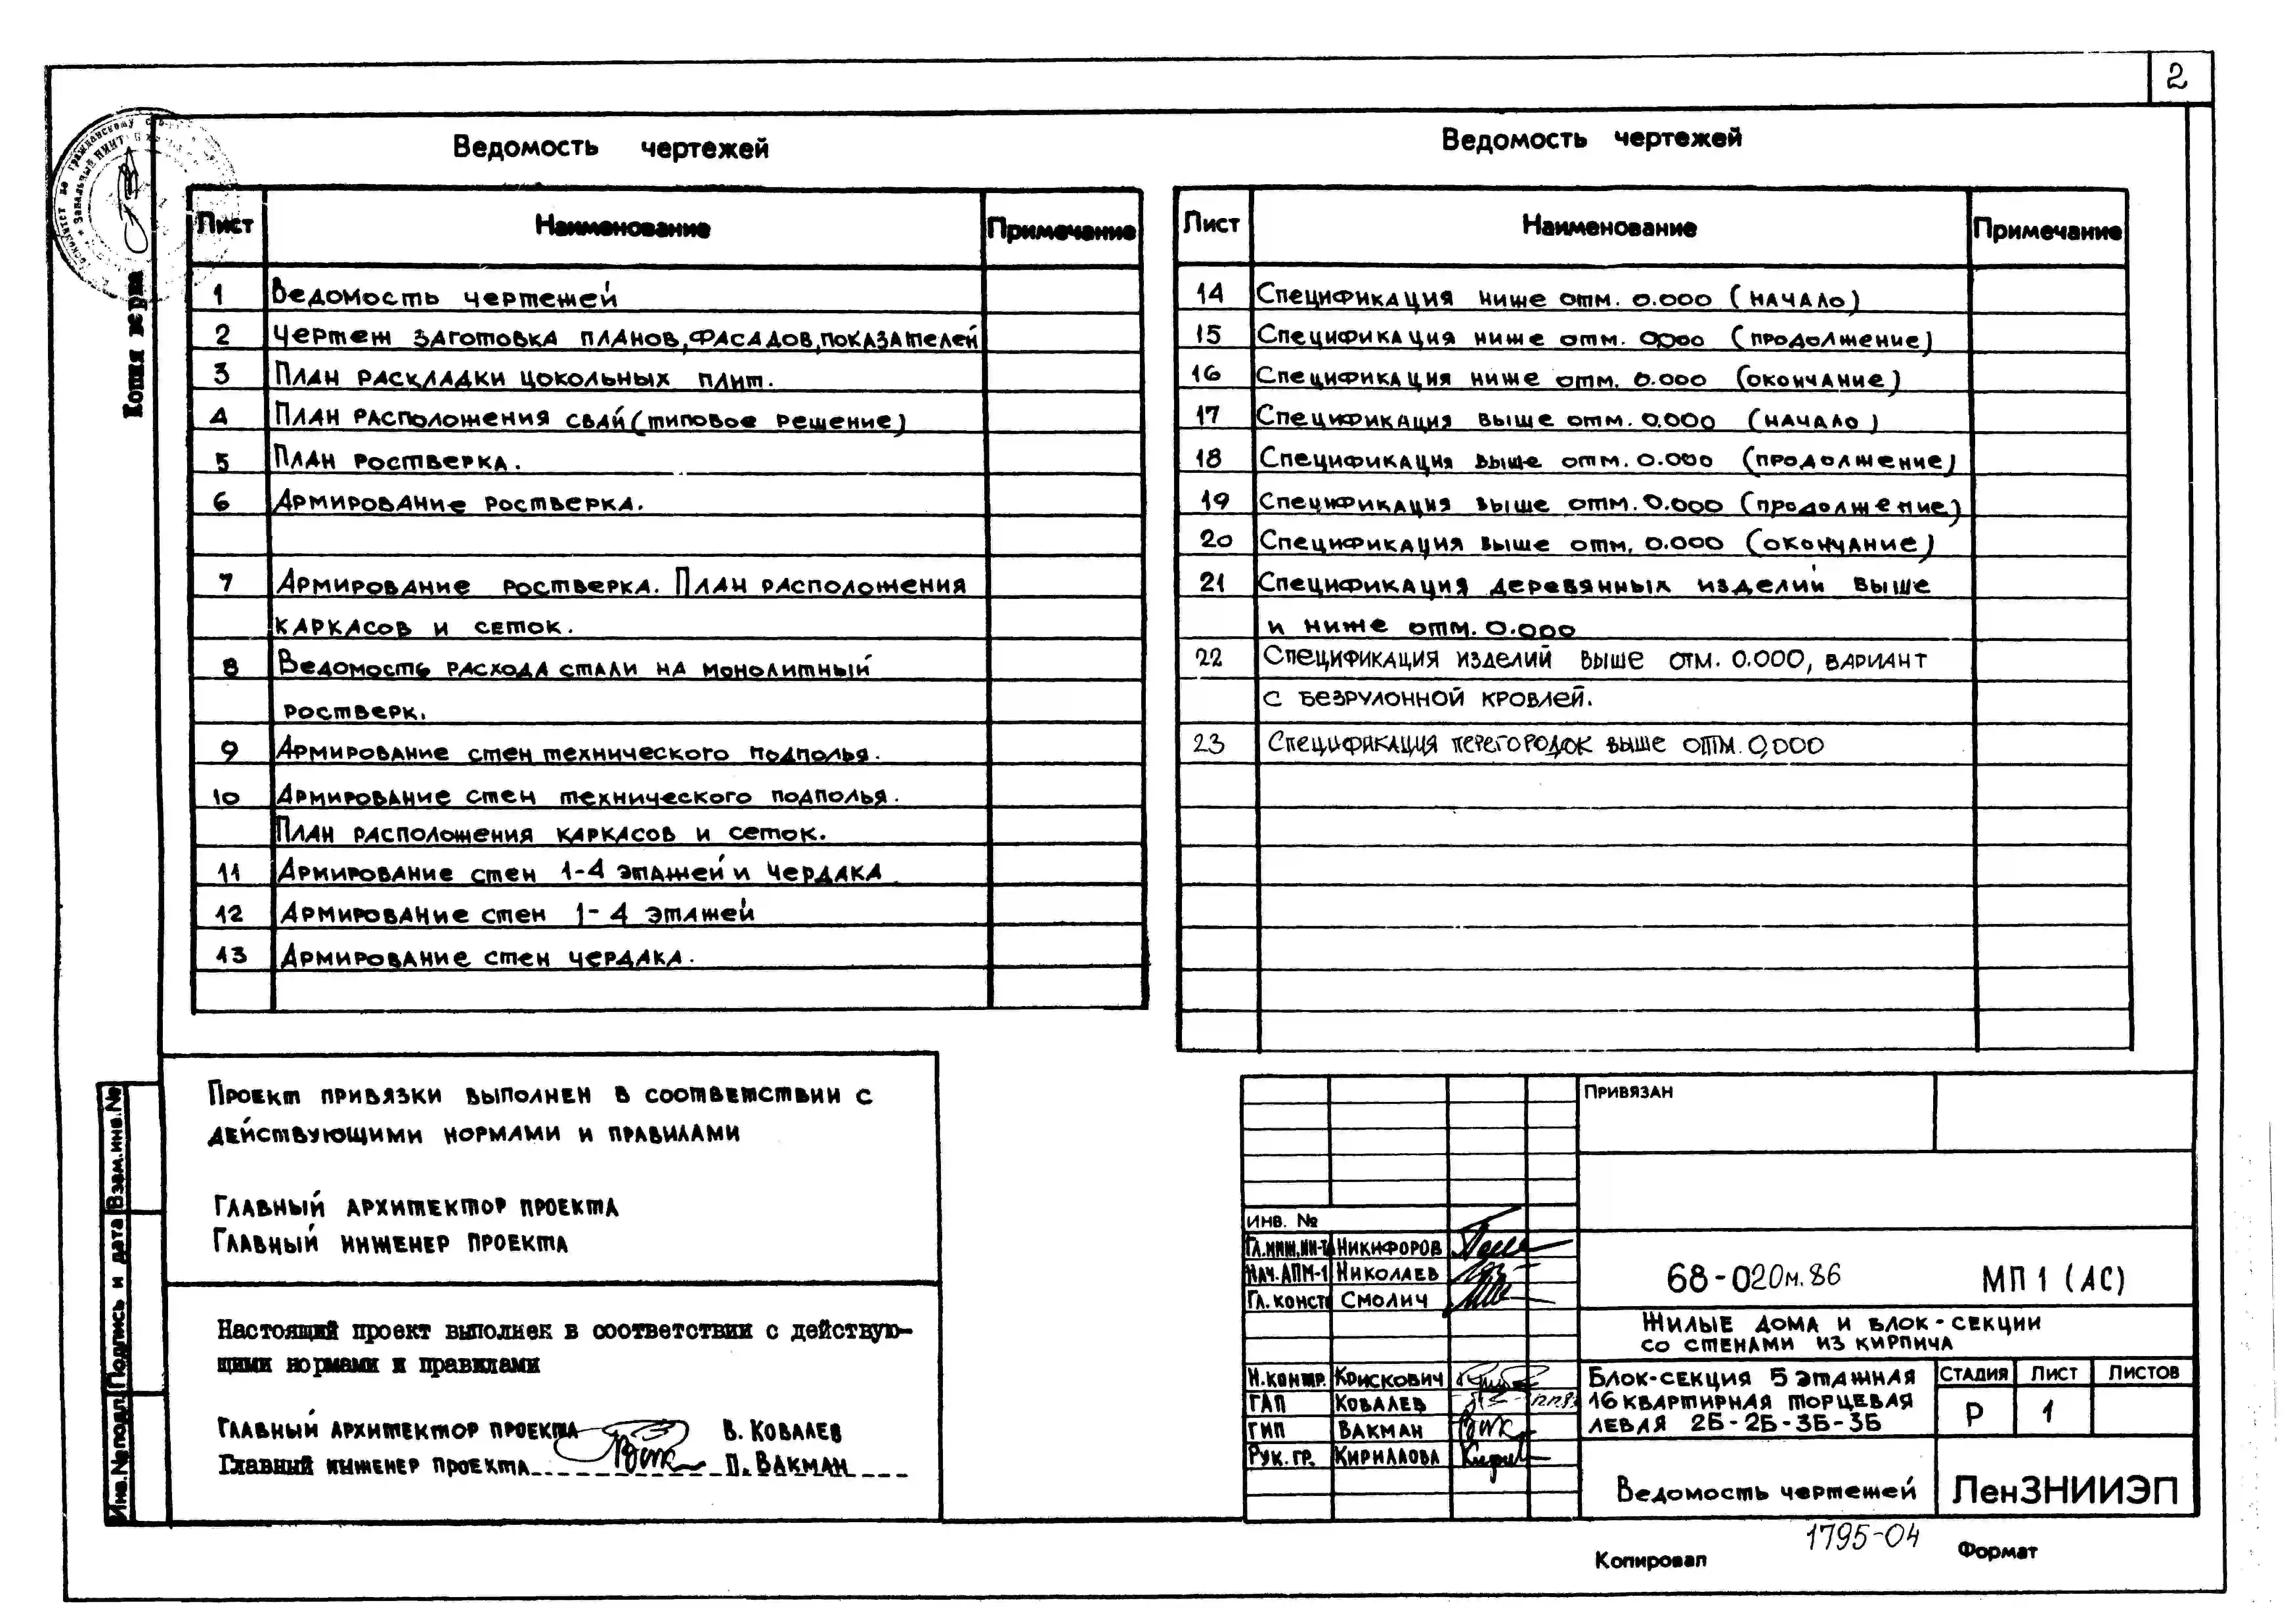 2
Копия верна
Ведомость чертежей
Лист Наименование Примечание
1 Ведомость чертежей
2 Чертеж заготовка планов, фасадов, показателей
3 План раскладки цокольных плит.
4 План расположения свай (типовое решение)
5 План ростверка.
6 Армирование ростверка.
7 Армирование ростверка. План расположения
каркасов и сеток.
8 Ведомость расхода стали на монолитный
ростверк.
9 Армирование стен технического подполья.
10 Армирование стен технического подполья.
План расположения каркасов и сеток.
11 Армирование стен 1-4 этажей и чердака
12 Армирование стен 1-4 этажей
13 Армирование стен чердака.
Ведомость чертежей
Лист Наименование Примечание
14 Спецификация ниже отм. 0.000 (начало)
15 Спецификация ниже отм. 0.000 (продолжение)
16 Спецификация ниже отм. 0.000 (окончание)
17 Спецификация выше отм. 0.000 (начало)
18 Спецификация выше отм. 0.000 (продолжение)
19 Спецификация выше отм. 0.000 (продолжение)
20 Спецификация выше отм. 0.000 (окончание)
21 Спецификация деревянных изделий выше
и ниже отм. 0.000
22 Спецификация изделий выше отм. 0.000, вариант
с безрулонной кровлей.
23 Спецификация перегородок выше отм. 0,000
Проект привязки выполнен в соответствии с
действующими нормами и правилами
Главный архитектор проекта
Главный инженер проекта
Настоящий проект выполнен в соответствии с действую-
щими нормами и правилами
Главный архитектор проекта В. Ковалев
Главный инженер проекта П. Вакман
Инв.№подл. Подпись и дата Взам.инв.№
Привязан
Инв. №
Гл.инж.ин-та Никифоров
Нач.АПМ-1 Николаев
Гл. конст Смолич
Н.контр. Крискович
ГАП Ковалев
ГИП Вакман
Рук. гр. Кириллова
68-020м.86 МП 1 (АС)
Жилые дома и блок-секции
со стенами из кирпича
Блок-секция 5 этажная
16 квартирная торцевая
левая 2Б-2Б-3Б-3Б
Стадия Лист Листов
Р 1
Ведомость чертежей
ЛенЗНИИЭП
1795-04
Копировал Формат